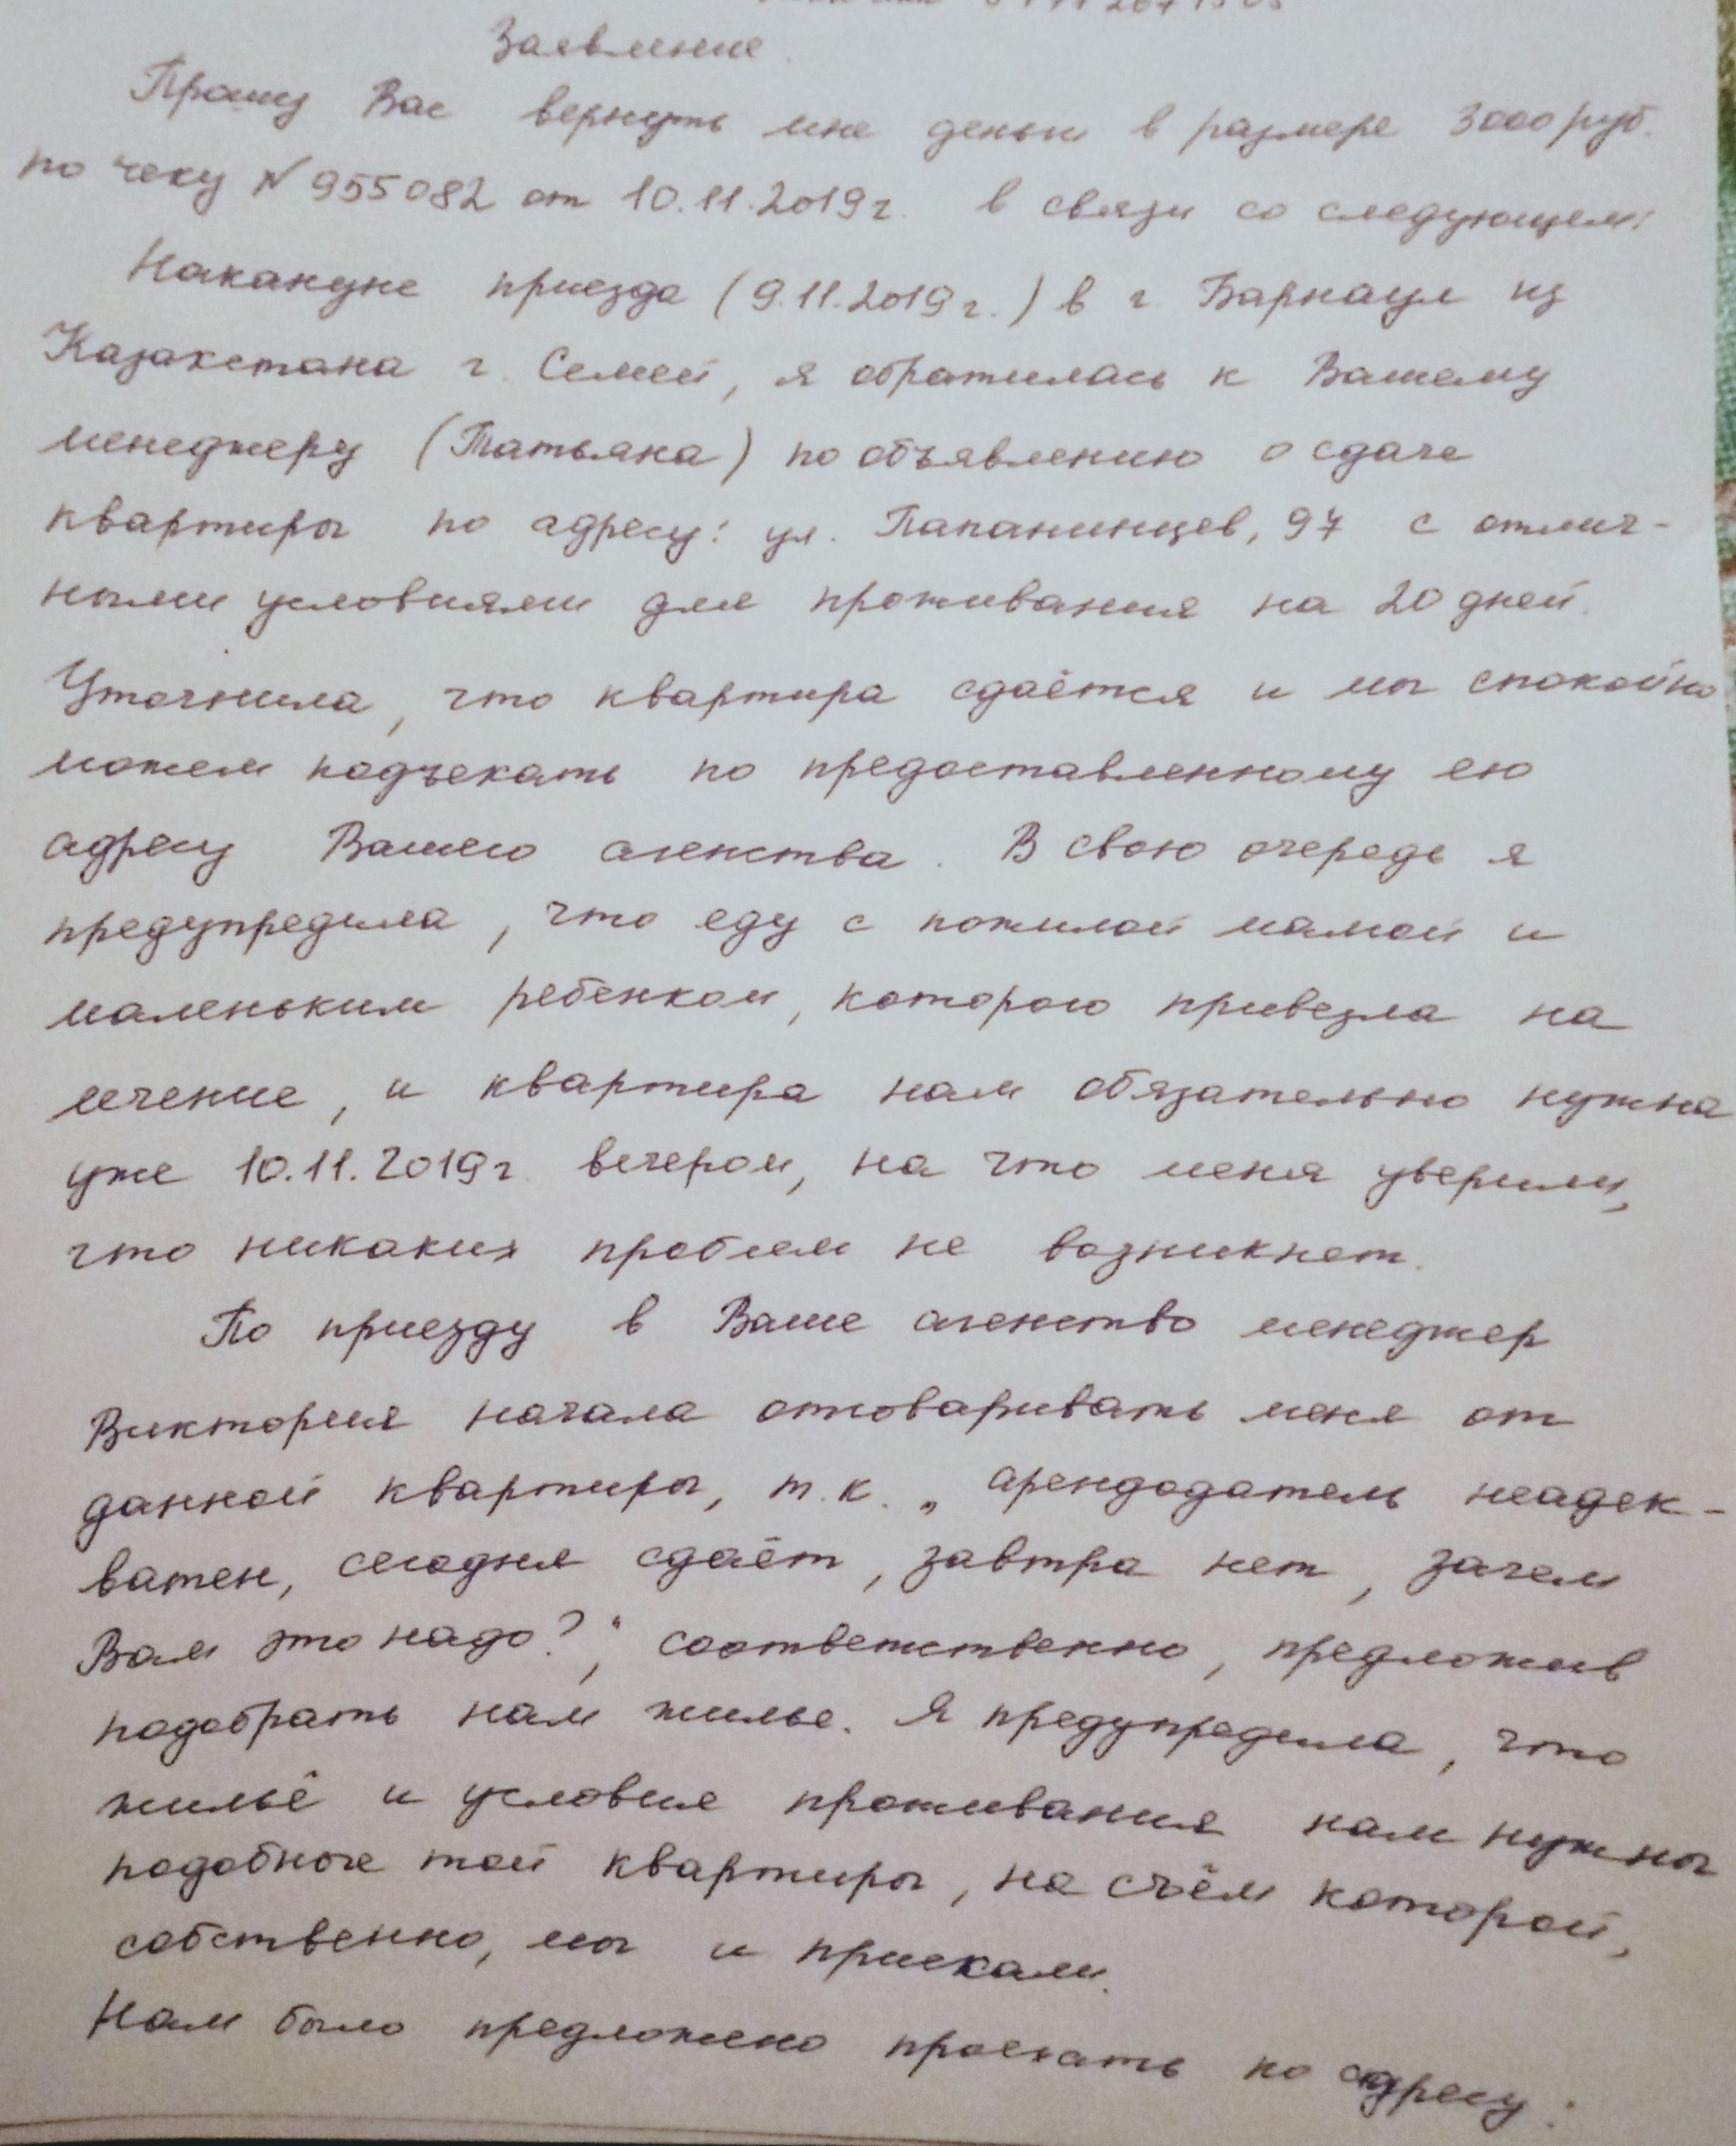 Заявление.
Прошу Вас вернуть мне деньги в размере 3000 руб.
по чеку N 955082 от 10.11.2019г. в связи со следующем:
Накануне приезда (9.11.2019г.) в г. Барнаул из
Казахстана г. Семей, я обратилась к Вашему
менеджеру (Татьяна) по объявлению о сдаче
квартиры по адресу: ул. Папанинцев, 97 с отлич-
ными условиями для проживания на 20 дней.
Уточнила, что квартира сдаётся и мы спокойно
можем подъехать по предоставленному ею
адресу Вашего агенства. В свою очередь я
предупредила, что еду с пожилой мамой и
маленьким ребенком, которого привезла на
лечение, и квартира нам обязательно нужна
уже 10.11.2019г. вечером, на что меня уверили,
что никаких проблем не возникнет.
По приезду в Ваше агенство менеджер
Виктория начала отговаривать меня от
данной квартиры, т.к. „арендодатель неадек-
ватен, сегодня сдаёт, завтра нет, зачем
Вам это надо?", соответственно, предложив
подобрать нам жилье. Я предупредила, что
жильё и условие проживания нам нужны
подобные той квартиры, на съём которой,
собственно, мы и приехали.
Нам было предложено проехать по адресу: